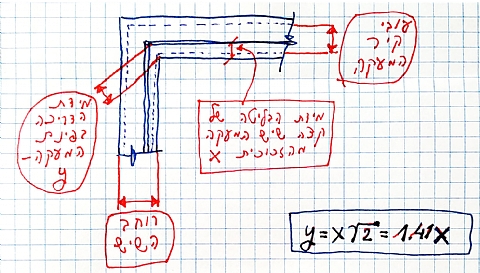 עובי
קיר
המעקה
מידת
הדריכה
בפינת
המעקה-
y
מידת הבליטה של
קצה שיש המעקה
מהזכוכית x
רוחב
השיש
y=x√2=1.41x